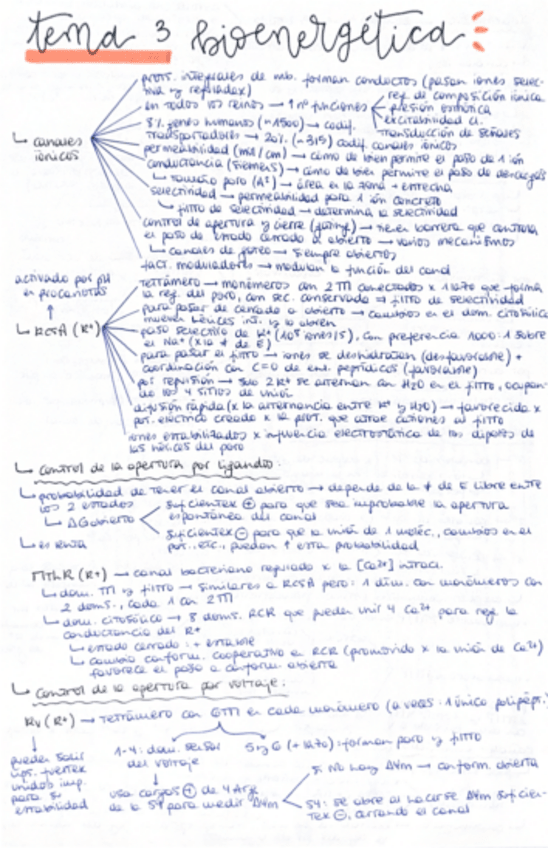 tema 3 bioenergética
prots. integrales de mb. forman conductos (pasan iones selec-
tiva y regulada)
en todos los reinos → 1 nº funciones
reg. de composición iónica
presión osmótica
excitabilidad cl.
transducción de señales
↳ canales
iónicos
8% genes humanos (≈1500) → codif.
transportadores → 20% (≈315) codif. canales iónicos
permeabilidad (mA/cm) → cómo de bien permite el paso de 1 ión
conductancia (siemens) → cómo de bien permite el paso de descargas
↳ tamaño poro (Aº) → área en la zona + estrecha
selectividad → permeabilidad para 1 ión concreto
↳ filtro de selectividad → determina la selectividad
control de apertura y cierre (gating) → tienen barrera que controla
el paso de estado cerrado a abierto → varios mecanismos
↳ canales de goteo → siempre abiertos
fact. moduladores → modulan la función del canal
activado por pH
en procariotas
↑
↳ KcsA (K⁺)
tetrámero → monómeros con 2 TM conectados x 1 lazo que forma
la reg. del poro, con sec. conservada → filtro de selectividad
para pasar de cerrado a abierto → cambios en el dom. citosólico
mueven hélices int. y lo abren
paso selectivo de K⁺ (10⁸ iones/s), con preferencia 1000:1 sobre
el Na⁺ (x la ≠ de E)
para pasar el filtro → iones se deshidratan (desfavorable) +
coordinación con C=O de enl. peptídicos (favorable)
por repulsión → solo 2 K⁺ se alternan con H2O en el filtro, ocupan-
do los 4 sitios de unión
difusión rápida (x la alternancia entre K⁺ y H2O) → favorecida x
pot. eléctrico creado x la prot. que atrae cationes al filtro
iones estabilizados x influencia electrostática de los dipolos de
las hélices del poro
↳ control de la apertura por ligando:
↳ probabilidad de tener el canal abierto → depende de la ≠ de E libre entre
los 2 estados
↳ ΔG abierto
suficientem ⊕ para que sea improbable la apertura
espontánea del canal
suficientem ⊖ para que la unión de 1 moléc., cambios en el
pot., etc., puedan ↑ esta probabilidad
↳ es lenta
MthK (K⁺) → canal bacteriano regulado x la [Ca²⁺] intracl.
↳ dom. TM y filtro → similares a KcsA pero: 1 dím. con monómeros con
2 doms., cada 1 con 2TM
↳ dom. citosólico → 8 doms. RCK que pueden unir 4 Ca²⁺ para reg. la
conductancia del K⁺
↳ estado cerrado: + estable
↳ cambio conform. cooperativo a RCK (promovido x la unión de Ca²⁺)
favorece el paso a conform. abierta
↳ control de la apertura por voltaje:
Kv (K⁺) → tetrámero con 6TM en cada monómero (a veces: 1 único polipépt.)
pueden salir
ups. fuertem
unidos imp.
para su
estabilidad
1-4: dom. sensor
del voltaje
5 y 6 (+ lazo): forman poro y filtro
usa cargas ⊕ de 4 Arg
de la S4 para medir ΔVm
si No hay ΔVm → conform. abierta
S4: se abre al hacerse ΔVm suficien-
tem ⊖, cerrando el canal